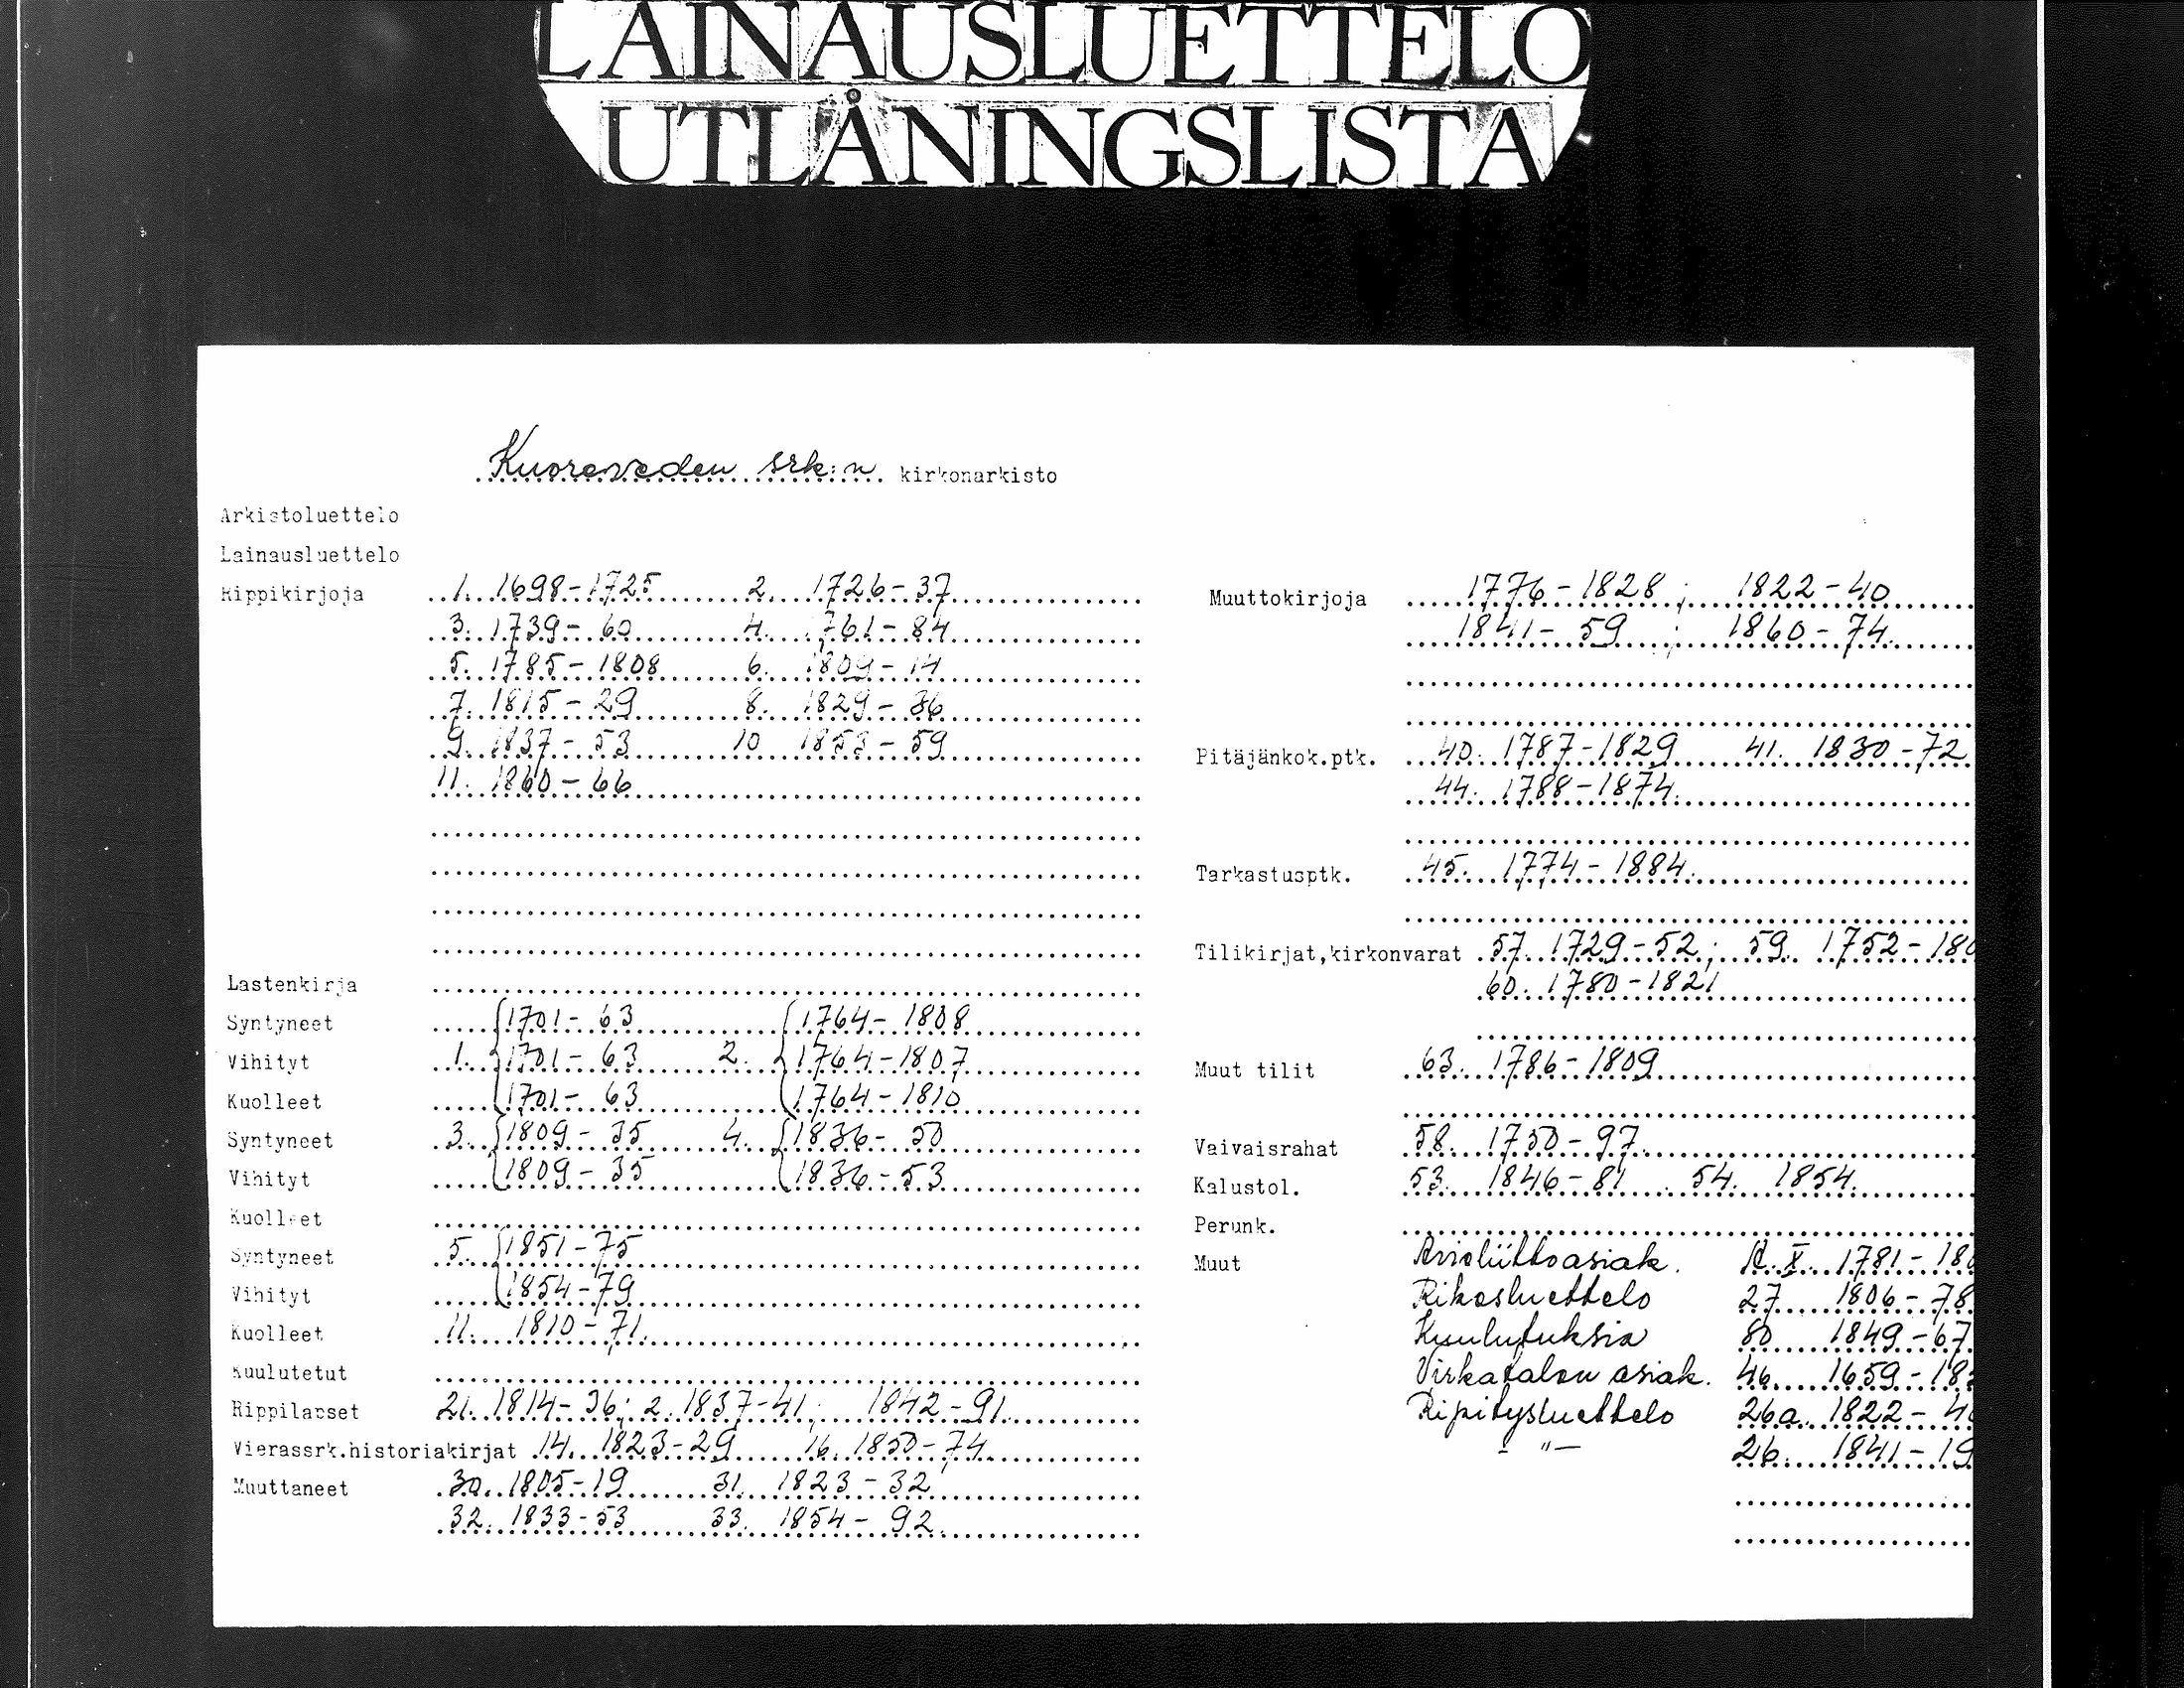 LAINAUSLUETTELO
UTLÅNINGSLISTA
Kuoreveden srk:n kirkonarkisto
Arkistoluettelo
Lainausluettelo
Rippikirjoja 1. 1698-1725 2. 1726-37
3. 1739-60 4. 1761-84
5. 1785-1808 6. 1809-14
7. 1815-29 8. 1829-36
9. 1837-53 10 1853-59
11. 1860-66
Lastenkirja
Syntyneet 1701-63 1764-1808
Vihityt 1. 1701-63 2. 1764-1807
Kuolleet 1701-63 1764-1810
Syntyneet 3. 1809-35 4. 1836-50
Vihityt 1809-35 1836-53
Kuolleet
Syntyneet 5. 1851-75
Vihityt 1854-79
Kuolleet 11. 1810-71.
Kuulutetut
Rippilapset 21. 1814-36; 2. 1837-41; 1842-91.
Vierassrk.historiakirjat 14. 1823-29 16. 1850-74.
Muuttaneet 30. 1805-19 31. 1823-32
32. 1833-53 33. 1854-92.
Muuttokirjoja 1776-1828; 1822-40
1841-59 ; 1860-74.
Pitäjänkok.ptk. 40. 1787-1829 41. 1830-72
44. 1788-1874.
Tarkastusptk. 45. 1774-1884.
Tilikirjat,kirkonvarat 57. 1729-52; 59. 1752-180
60. 1780-1821
Muut tilit 63. 1786-1809
Vaivaisrahat 58. 1750-97.
Kalustol. 53. 1846-81 54. 1854.
Perunk.
Muut Avioliittoasiak. X. 1781-180
Rikosluettelo 27 1806-78
Kuulutuksia 80 1849-67
Virkatalon asiak. 46. 1659-18
Ripitysluettelo 26a. 1822-4
- " - 26. 1841-19